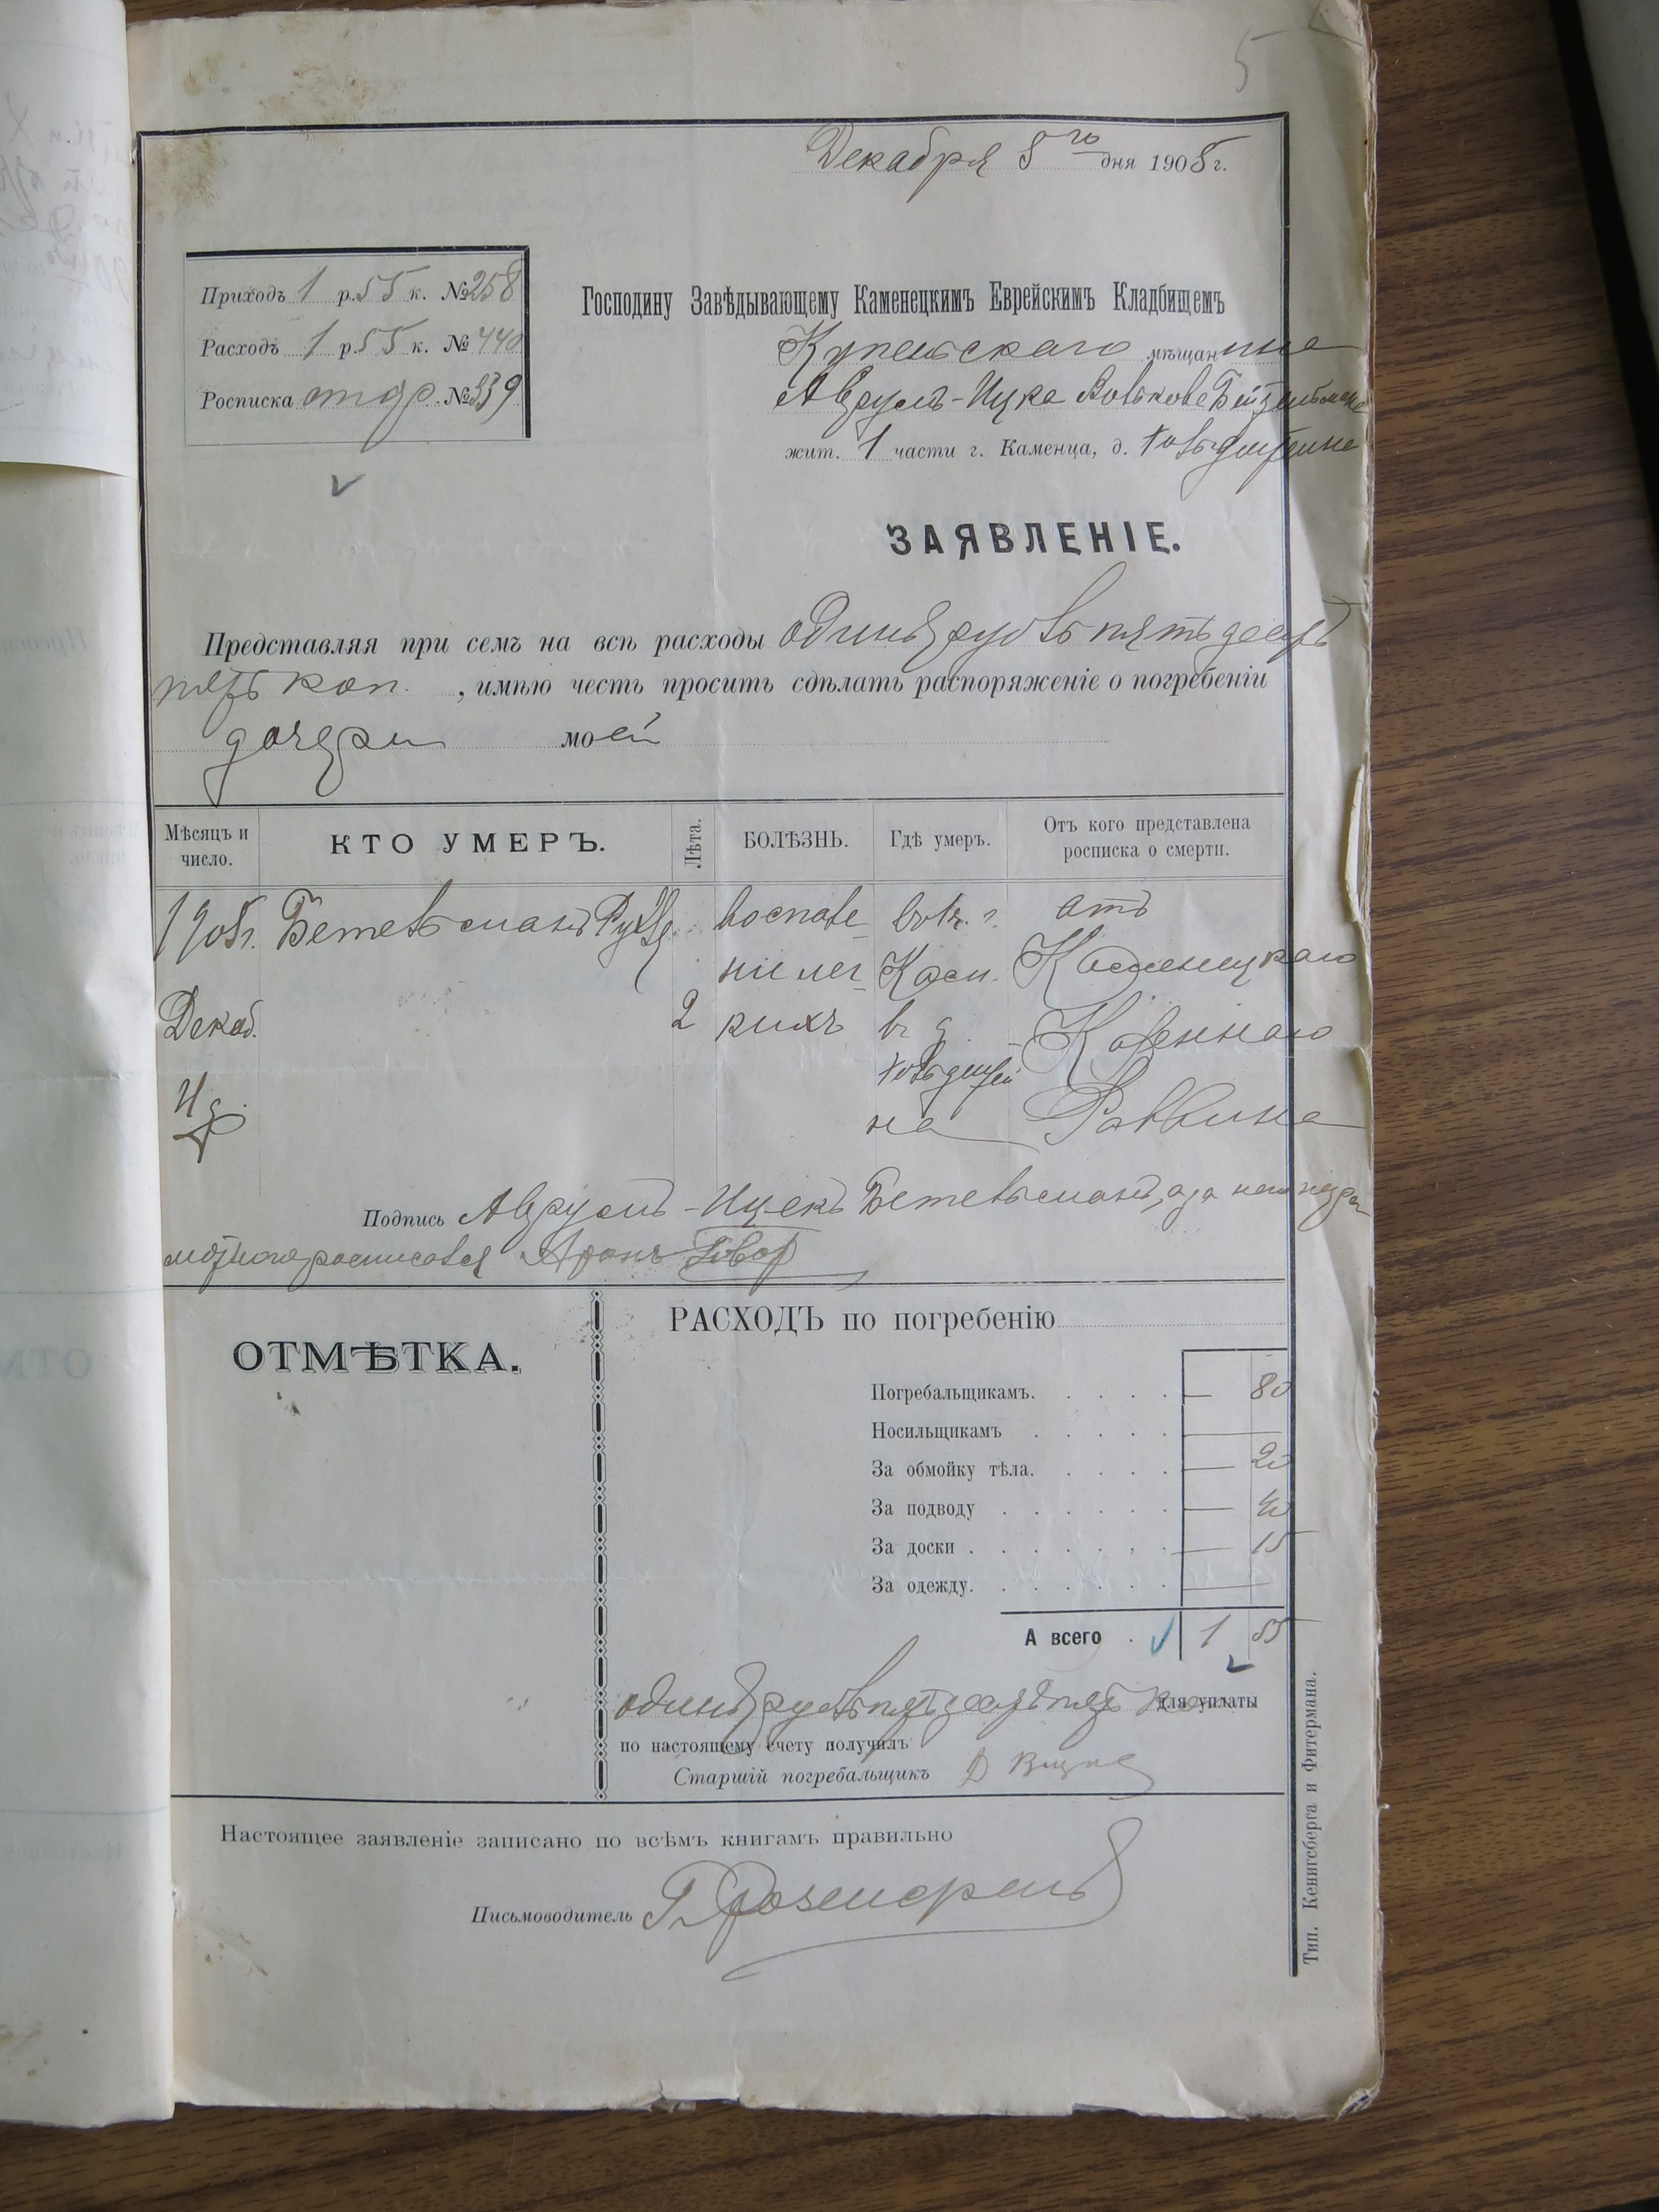 5
Декабря 8 го дня 1908 г.
Приходъ 1 р. 55 к. № 258
Расходъ 1 р. 55 к. № 440
Росписка отдр. № 339
Господину Завѣдывающему Каменецкимъ Еврейскимъ Кладбищемъ
Купельскаго мѣщанина
Аврумъ-Ицка
жит. 1 части г. Каменца, д.
ЗАЯВЛЕНІЕ.
Представляя при семъ на всѣ расходы одинъ рубль пятьдесятъ
пять коп. , имѣю честь просить сдѣлать распоряженіе о погребеніи
дочери моей
Мѣсяцъ и число. КТО УМЕРЪ. Лѣта. БОЛѢЗНЬ. Гдѣ умеръ. Отъ кого представлена росписка о смерти.
1908г. воспале въ г. отъ
ніе лег Кам. Каменецкаго
Декаб. 2 кихъ въ д. Казеннаго
на Раввина
Подпись Аврумъ-Ицекъ а за него негра
мотнаго росписался Аронъ
ОТМѢТКА.
РАСХОДЪ по погребенію
Погребальщикамъ. — 80
Носильщикамъ —
За обмойку тѣла. — 20
За подводу — 40
За доски — 15
За одежду. —
А всего 1 55
одинъ рубль пятьдесятъ пять коп. для уплаты
по настоящему счету получилъ
Старшій погребальщикъ
Настоящее заявленіе записано по всѣмъ книгамъ правильно
Письмоводитель
Тип. Кенигсберга и Фитермана.